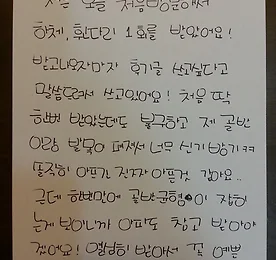 저는 오늘 처음방문해서
하체, 휜다리 1회를 받았어요!
받고나오자마자 후기글 쓰고싶다고
말씀드려서 쓰고있어요! 처음 딱
한번 받았는데도 불구하고 제 골반
이랑 발목이 펴져서 너무 신기방기ㅋㅋ
솔직히 아프긴 진짜 아픈것 같아요..
근데 한번만에 골반균형이 잡히
는게 보이니까 아파도 참고 받아야
겠어요! 열심히 받아서 꼭 예쁜